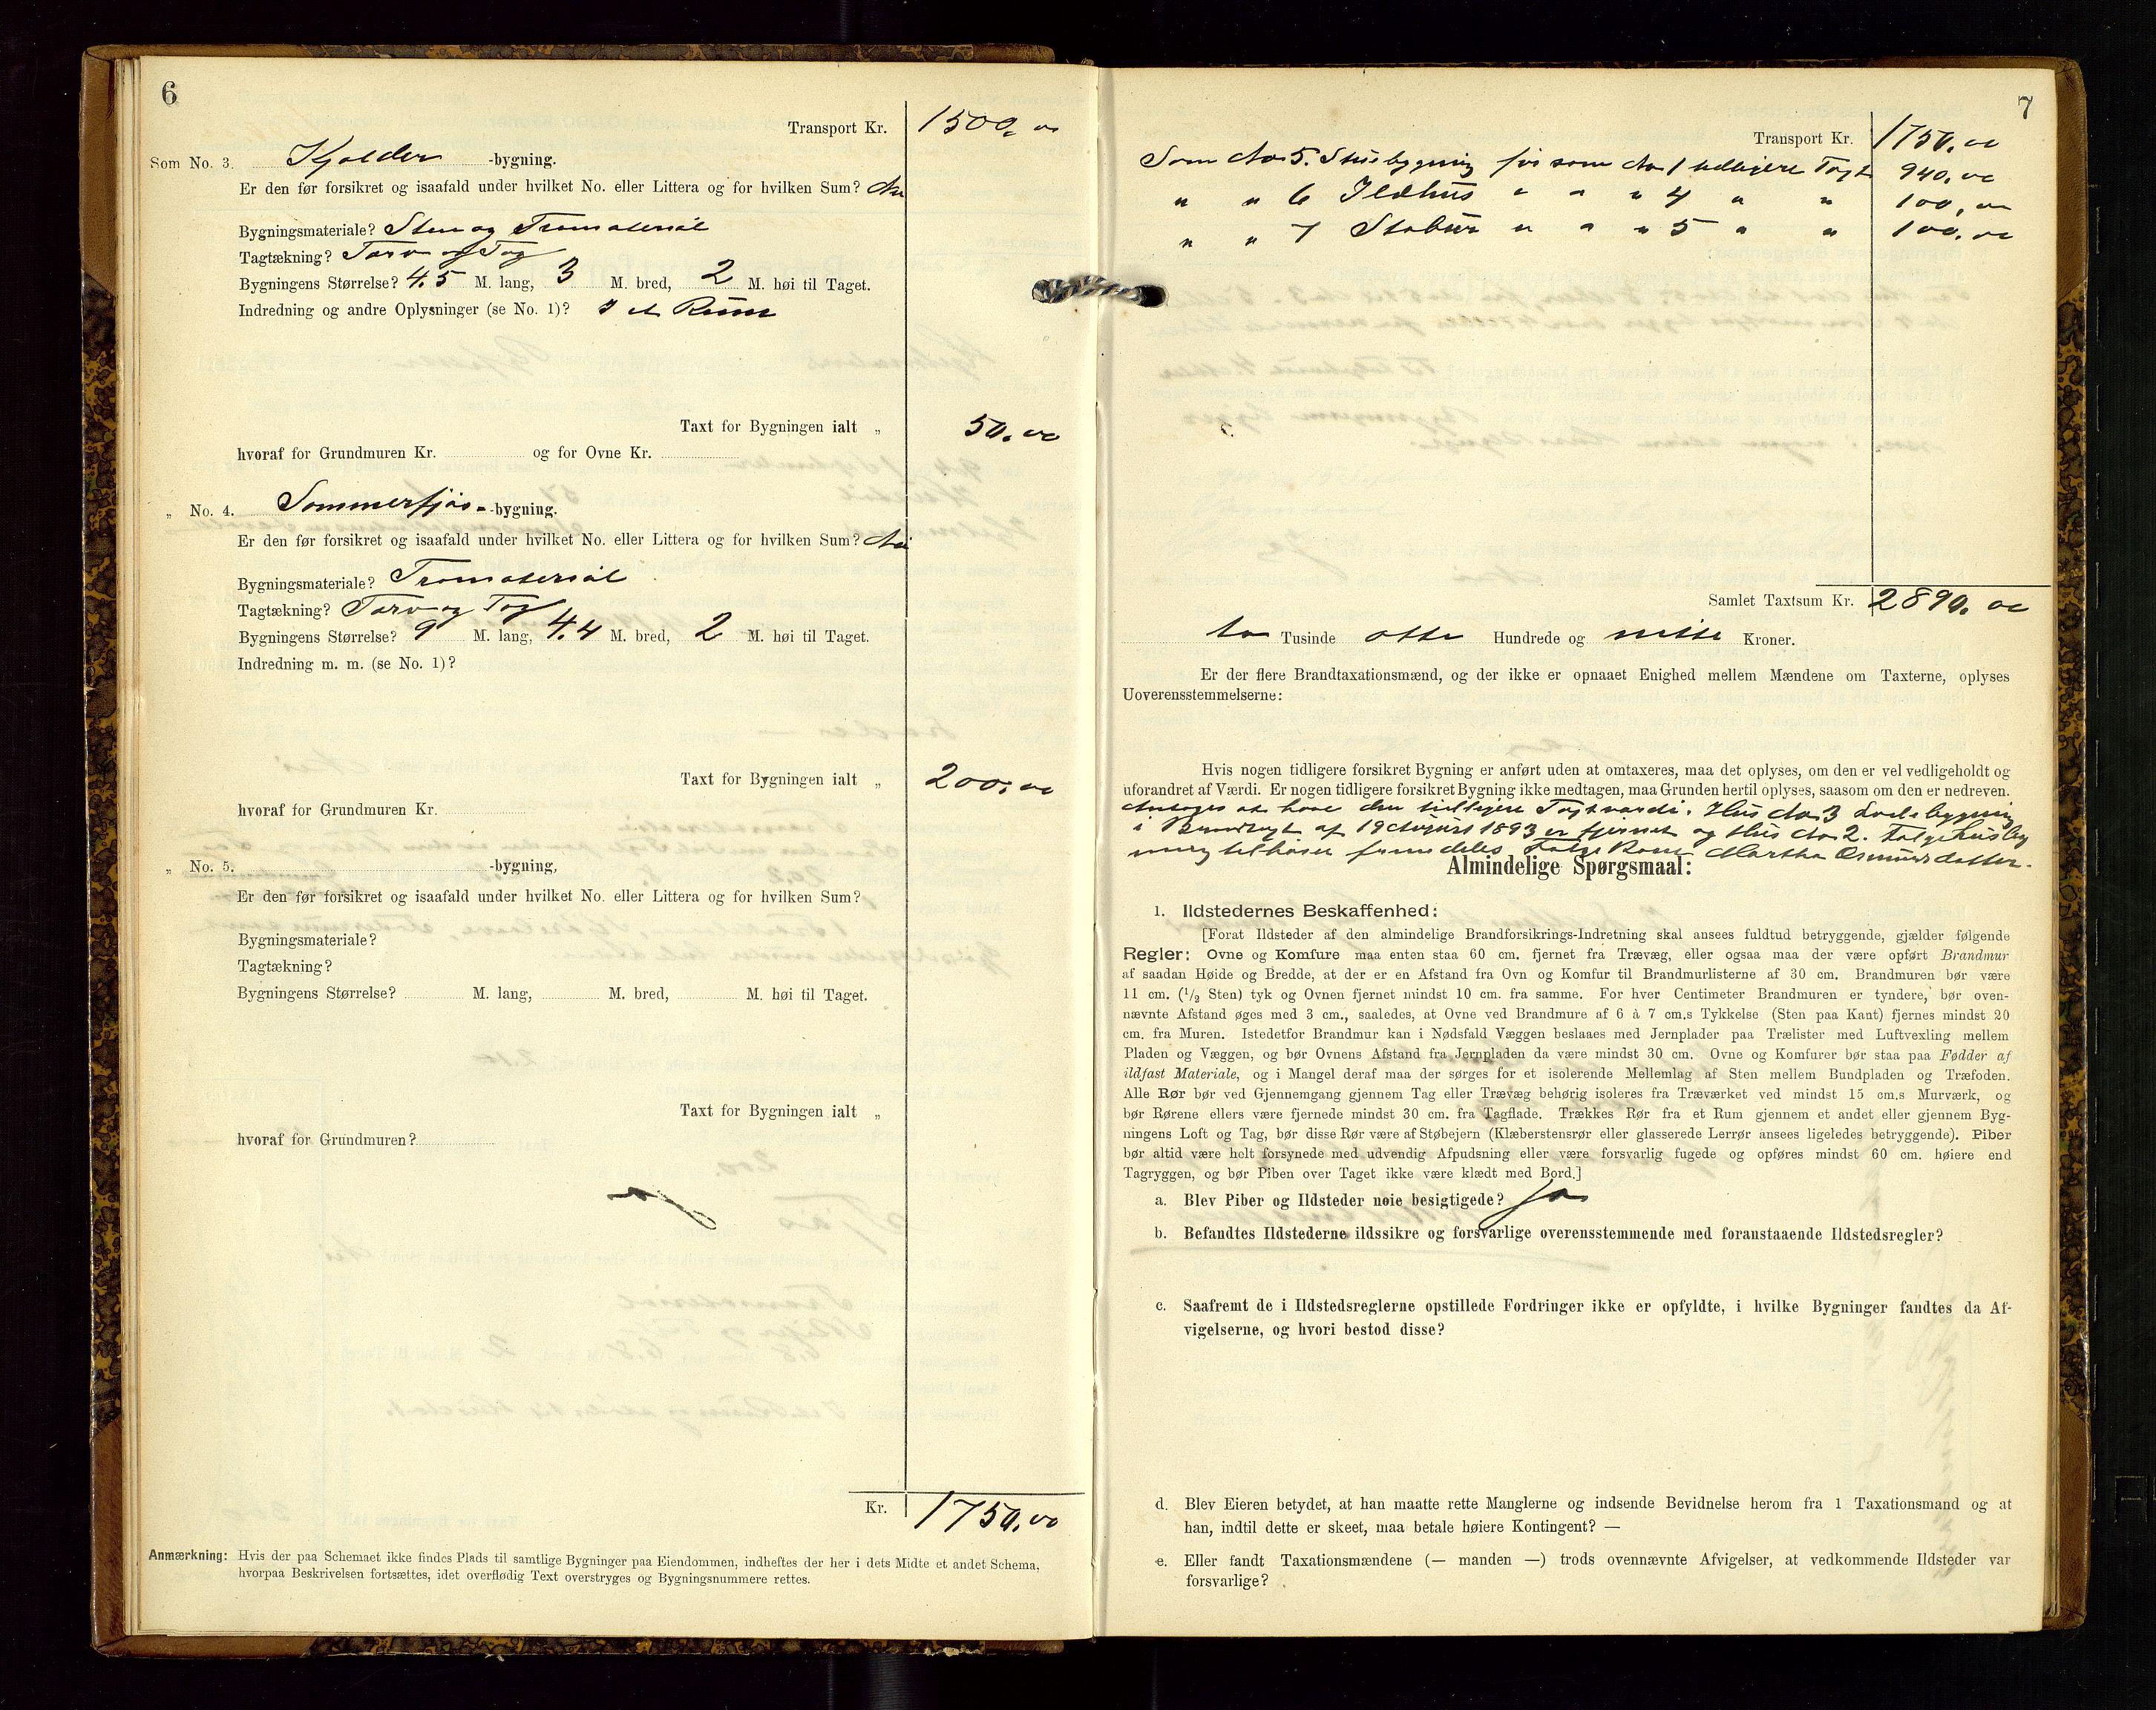 6
Transport Kr. 1500,00
Som No. 3. Kjelder -bygning.
Er den før forsikret og isaafald under hvilket No. eller Littera og for hvilken Sum? Nei
Bygningsmateriale? Sten og Træmaterial
Tagtækning? Torv og Tag
Bygningens Størrelse? 4,5 M. lang, 3 M. bred, 2 M. høi til Taget.
Indredning og andre Oplysninger (se No. 1)? I et Rum
Taxt for Bygningen ialt „ 50,00
hvoraf for Grundmuren Kr. og for Ovne Kr.
„ No. 4. Sommerfjøs- -bygning.
Er den før forsikret og isaafald under hvilket No. eller Littera og for hvilken Sum? Nei
Bygningsmateriale? Træmaterial
Tagtækning? Torv og Tag
Bygningens Størrelse? 9 M. lang, 4,4 M. bred, 2 M. høi til Taget.
Indredning m. m. (se No. 1)?
Taxt for Bygningen ialt „ 200,00
hvoraf for Grundmuren Kr.
„ No. 5. -bygning,
Er den før forsikret og isaafald under hvilket No. eller Littera og for hvilken Sum?
Bygningsmateriale?
Tagtækning?
Bygningens Størrelse? M. lang, M. bred, M. høi til Taget.
Taxt for Bygningen ialt „
hvoraf for Grundmuren?
Kr. 1750,00
Anmærkning: Hvis der paa Schemaet ikke findes Plads til samtlige Bygninger paa Eiendommen, indheftes der her i dets Midte et andet Schema,
hvorpaa Beskrivelsen fortsættes, idet overflødig Text overstryges og Bygningsnummere rettes.
7
Transport Kr. 1750,00
Som No 5. Stuebygning før som No 1 tidligere Taxt 940,00
" " 6 Ildhus " " " 4 " " 100,00
" " 7 Stabur " " " 5 " " 100,00
Samlet Taxtsum Kr. 2890,00
to Tusinde otte Hundrede og nitti Kroner.
Er der flere Brandtaxationsmænd, og der ikke er opnaaet Enighed mellem Mændene om Taxterne, oplyses
Uoverensstemmelserne:
Hvis nogen tidligere forsikret Bygning er anført uden at omtaxeres, maa det oplyses, om den er vel vedligeholdt og
uforandret af Værdi. Er nogen tidligere forsikret Bygning ikke medtagen, maa Grunden hertil oplyses, saasom om den er nedreven.
Antages at have den tidligere Taxtværdi. Hus No 3 Ladebygning
i Brandtaxt af 19 August 1893 er fjernet og Hus No 2. Folgehusbyg
ning tilhører fremdeles Martha Osmundsdatter.
Almindelige Spørgsmaal:
1. Ildstedernes Beskaffenhed:
[Forat Ildsteder af den almindelige Brandforsikrings-Indretning skal ansees fuldtud betryggende, gjælder følgende
Regler: Ovne og Komfure maa enten staa 60 cm. fjernet fra Trævæg, eller ogsaa maa der være opført Brandmur
af saadan Høide og Bredde, at der er en Afstand fra Ovn og Komfur til Brandmurlisterne af 30 cm. Brandmuren bør være
11 cm. (1/2 Sten) tyk og Ovnen fjernet mindst 10 cm. fra samme. For hver Centimeter Brandmuren er tyndere, bør oven-
nævnte Afstand øges med 3 cm., saaledes, at Ovne ved Brandmure af 6 à 7 cm.s Tykkelse (Sten paa Kant) fjernes mindst 20
cm. fra Muren. Istedetfor Brandmur kan i Nødsfald Væggen beslaaes med Jernplader paa Trælister med Luftvexling mellem
Pladen og Væggen, og bør Ovnens Afstand fra Jernpladen da være mindst 30 cm. Ovne og Komfurer bør staa paa Fødder af
ildfast Materiale, og i Mangel deraf maa der sørges for et isolerende Mellemlag af Sten mellem Bundpladen og Træfoden.
Alle Rør bør ved Gjennemgang gjennem Tag eller Trævæg behørig isoleres fra Træværket ved mindst 15 cm.s Murværk, og
bør Rørene ellers være fjernede mindst 30 cm. fra Tagflade. Trækkes Rør fra et Rum gjennem et andet eller gjennem Byg-
ningens Loft og Tag, bør disse Rør være af Støbejern (Klæberstensrør eller glasserede Lerrør ansees ligeledes betryggende). Piber
bør altid være helt forsynede med udvendig Afpudsning eller være forsvarlig fugede og opføres mindst 60 cm. høiere end
Tagryggen, og bør Piben over Taget ikke være klædt med Bord.]
a. Blev Piber og Ildsteder nøie besigtigede? Ja
b. Befandtes Ildstederne ildssikre og forsvarlige overensstemmende med foranstaaende Ildstedsregler?
c. Saafremt de i Ildstedsreglerne opstillede Fordringer ikke er opfyldte, i hvilke Bygninger fandtes da Af-
vigelserne, og hvori bestod disse?
d. Blev Eieren betydet, at han maatte rette Manglerne og indsende Bevidnelse herom fra 1 Taxationsmand og at
han, indtil dette er skeet, maa betale høiere Kontingent? —
e. Eller fandt Taxationsmændene (— manden —) trods ovennævnte Afvigelser, at vedkommende Ildsteder var
forsvarlige?